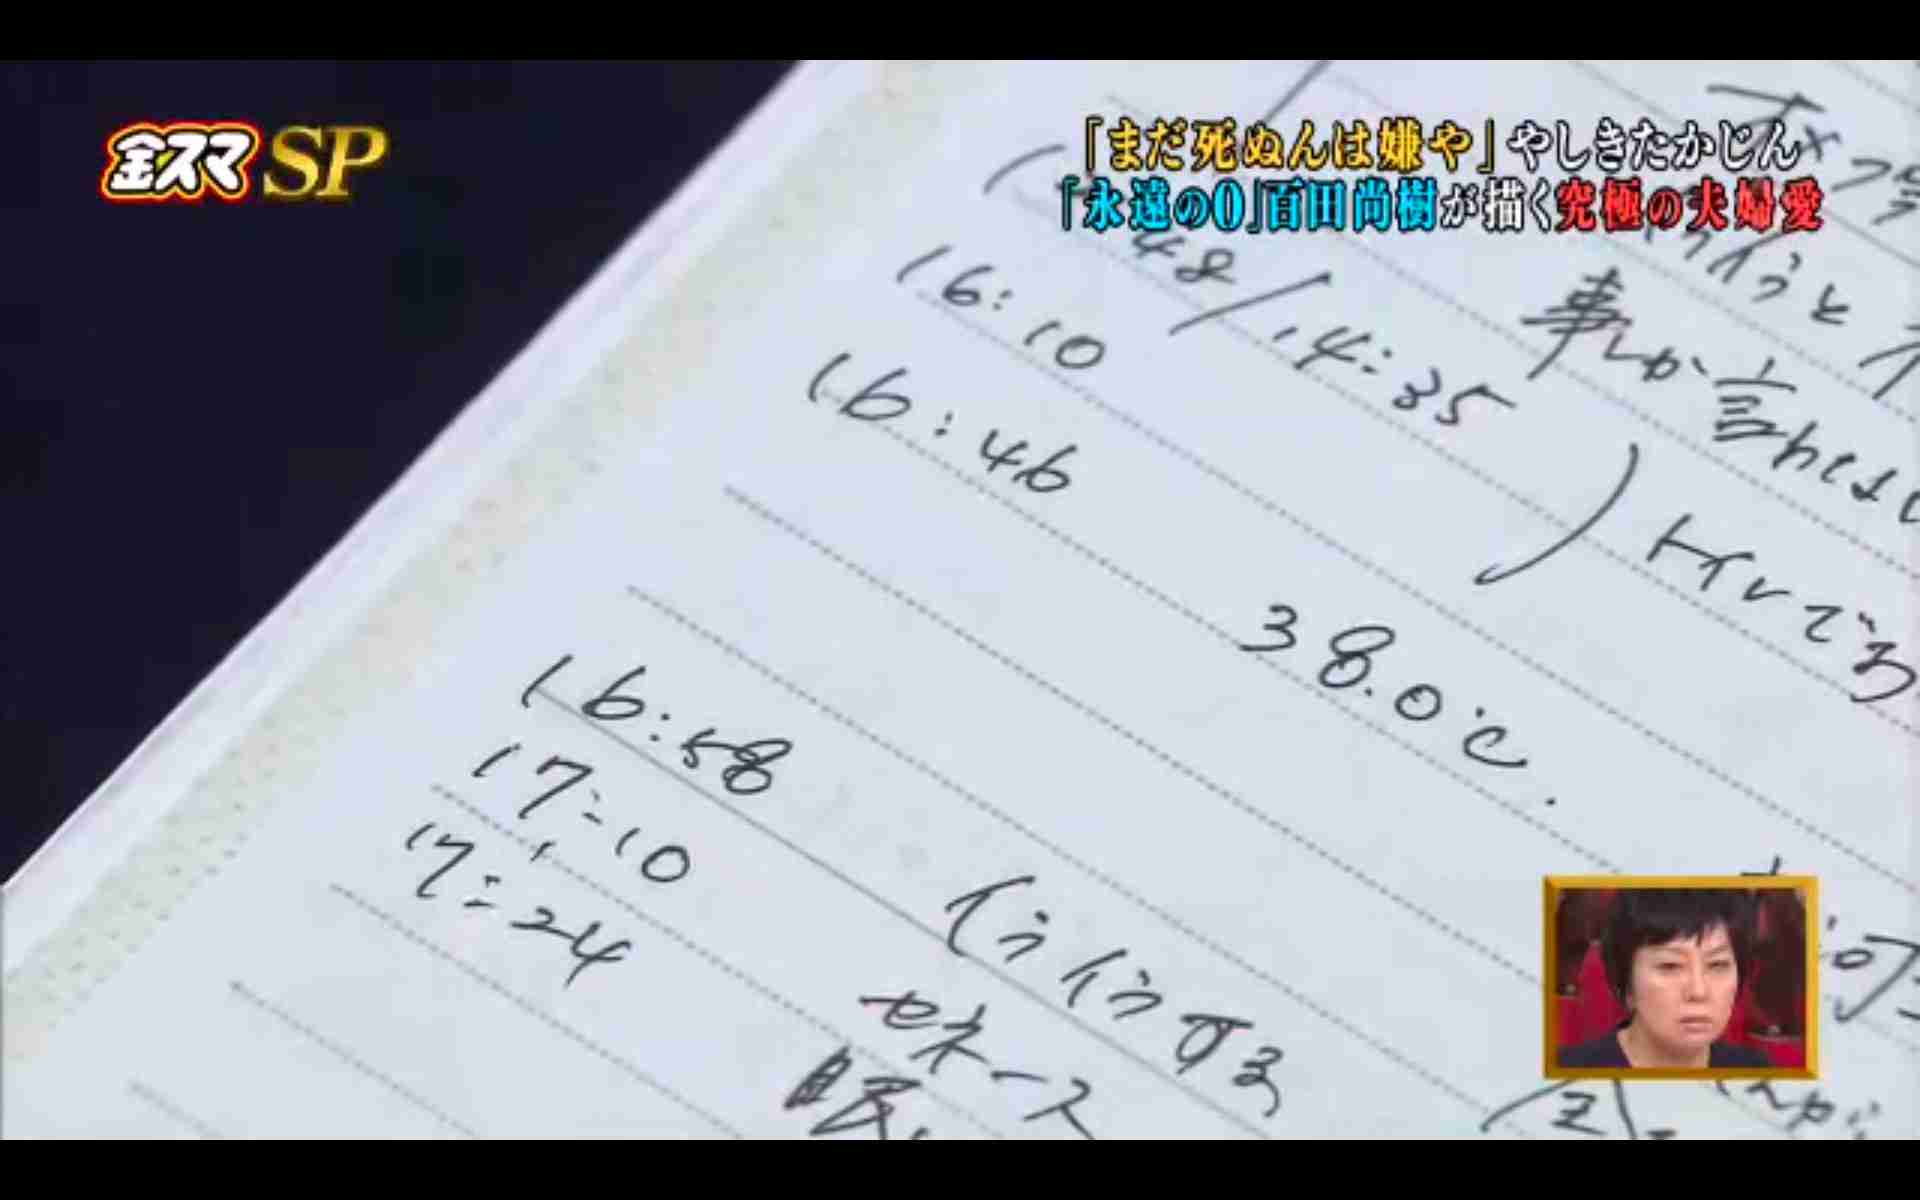 金スマSP
「まだ死ぬんは嫌や」やしきたかじん
「永遠の0」百田尚樹が描く究極の夫婦愛
48/14:35
16:10
事しか言わない
16:46
トイレでる
38.0℃.
16:58
17:10
イライラする
17:24
セネース
眠